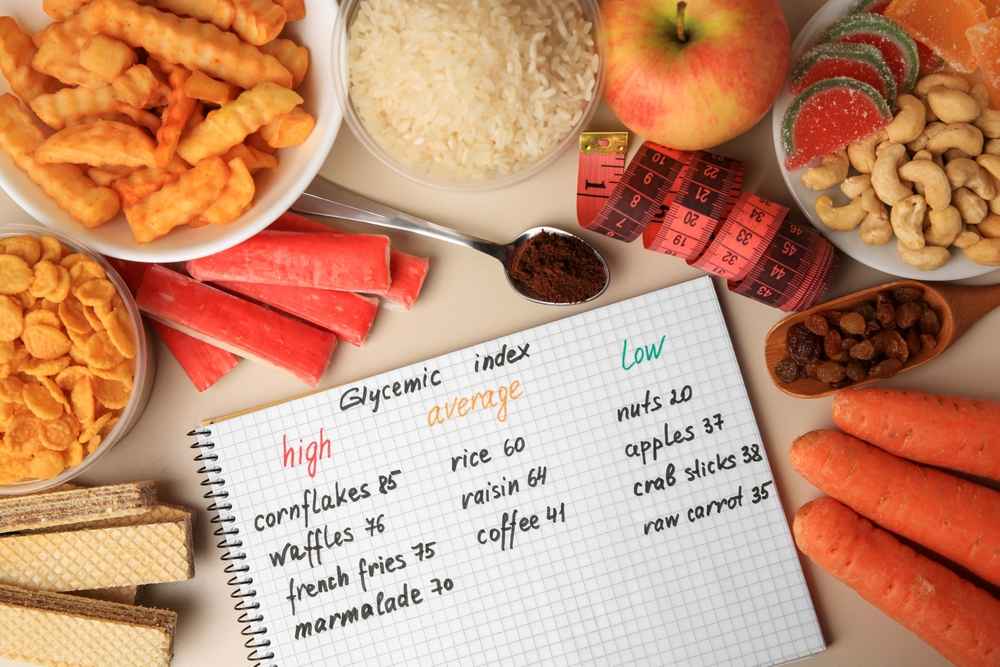 Glycemic index
high
cornflakes 85
waffles 76
french fries 75
marmalade 70
average
rice 60
raisin 64
coffee 41
Low
nuts 20
apples 37
crab sticks 38
raw carrot 35
1
10
9
8
7
22
21
20
19
34
33
32
45
44
43